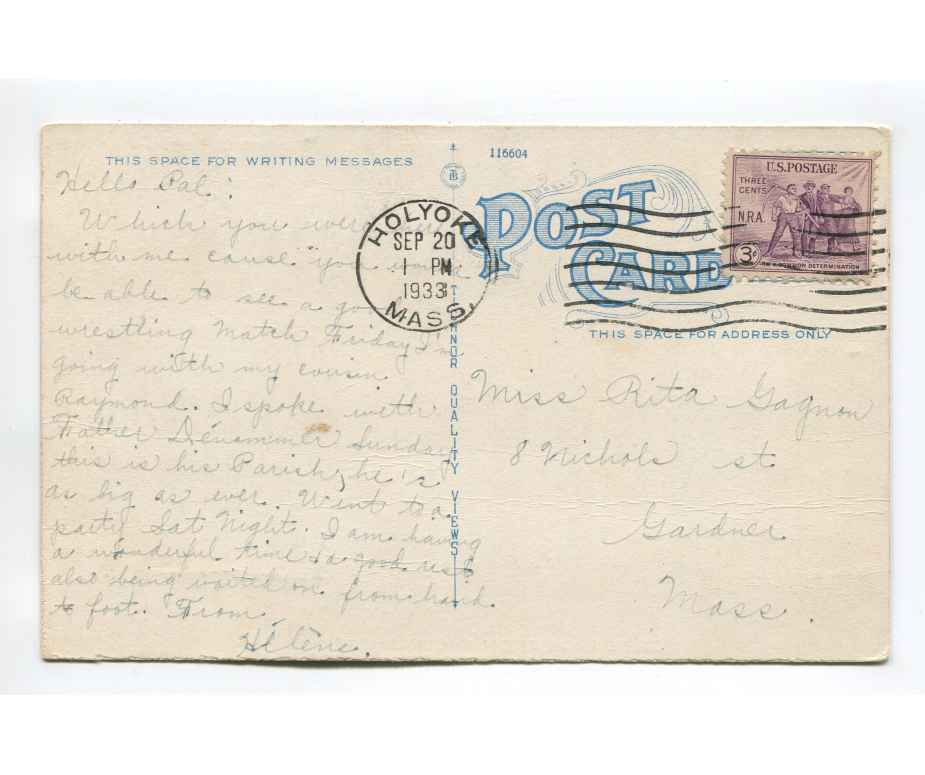 THIS SPACE FOR WRITING MESSAGES
116604
POST
CARD
THIS SPACE FOR ADDRESS ONLY
U.S.POSTAGE
THREE
CENTS
N.R.A.
3¢
DETERMINATION
HOLYOKE
SEP 20
1 PM
1933
MASS.
QUALITY VIEWS
Hello Pal:
Which you were
with me cause you
be able to see a
wrestling Match Friday I'm
going with my cousin
Raymond. I spoke with
Father Sunday
this is his Parish, he's
as big as ever. Went to a
party Sat Night. I am having
a wonderful time &a good rest
also being waited on from hand
to foot. From
Hélène.
Miss Rita Gagnon
8 Nichols st
Gardner
Mass.